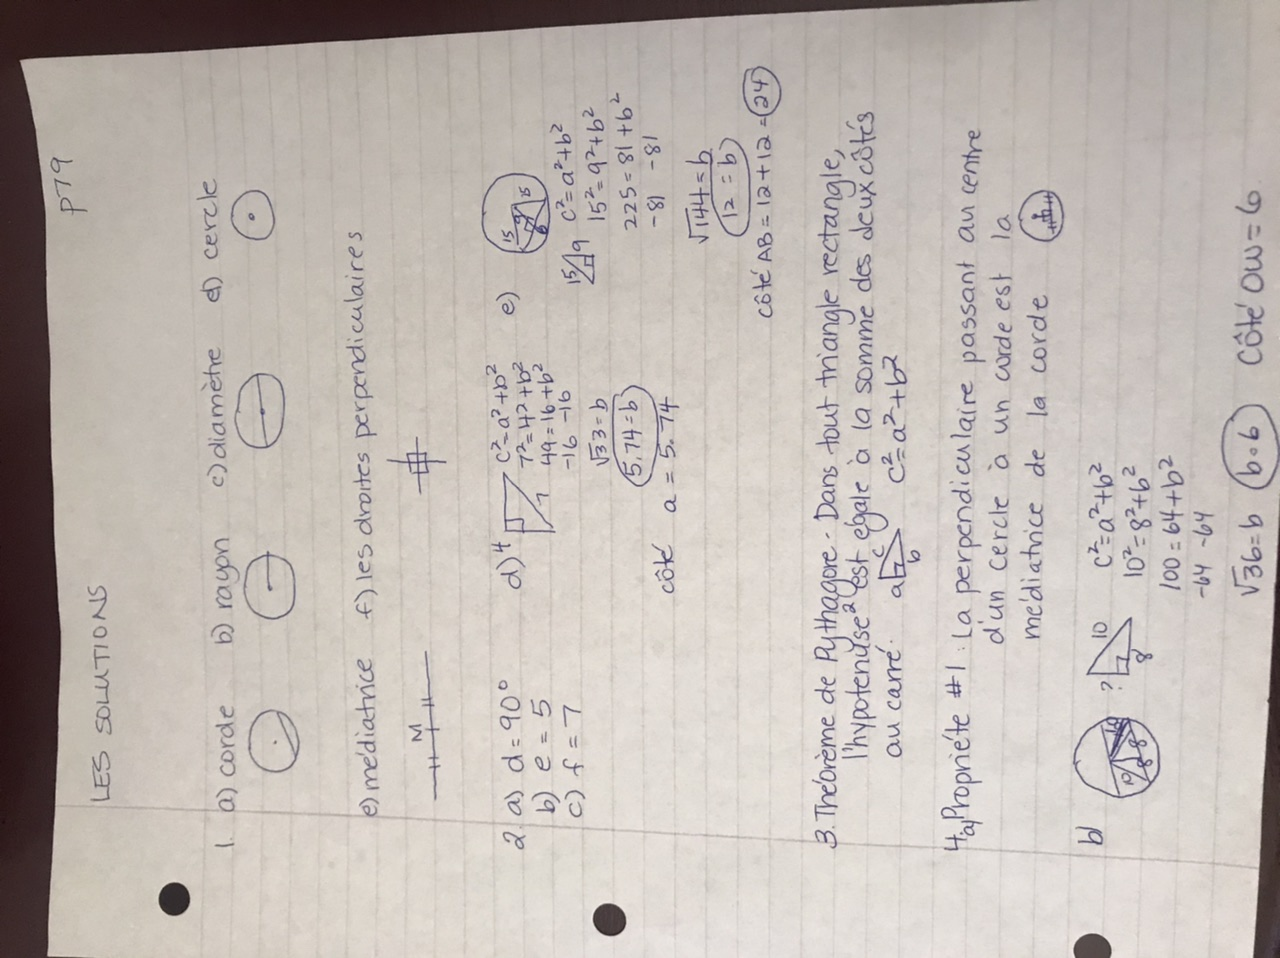 LES SOLUTIONS p79
1. a) corde b) rayon c) diamètre d) cercle
e) médiatrice f) les droites perpendiculaires
M
2. a) d = 90°
b) e = 5
c) f = 7
d) 4 7
c² = a² + b²
7² = 4² + b²
49 = 16 + b²
-16 -16
√33 = b
5,74 = b
côté a = 5.74
e) 15 9 15
15 9 c² = a² + b²
15² = 9² + b²
225 = 81 + b²
-81 -81
√144 = b
12 = b
côté AB = 12 + 12 = 24
3. Théorème de Pythagore - Dans tout triangle rectangle,
l'hypoténuse² est égale à la somme des deux côtés
au carré. a c b c² = a² + b²
4. a) Propriété #1 : La perpendiculaire passant au centre
d'un cercle à un corde est la
médiatrice de la corde
b) 10 8 8 10
? 10 8
c² = a² + b²
10² = 8² + b²
100 = 64 + b²
-64 -64
√36 = b b = 6 côté OW = 6